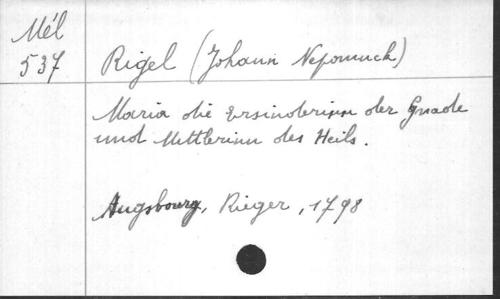 Mél
537
Rigel (Johann Nepomuck)
Maria die Ersinderinn der Gnade
und Mittlerinn des Heils.
Augsbourg, Rieger, 1798